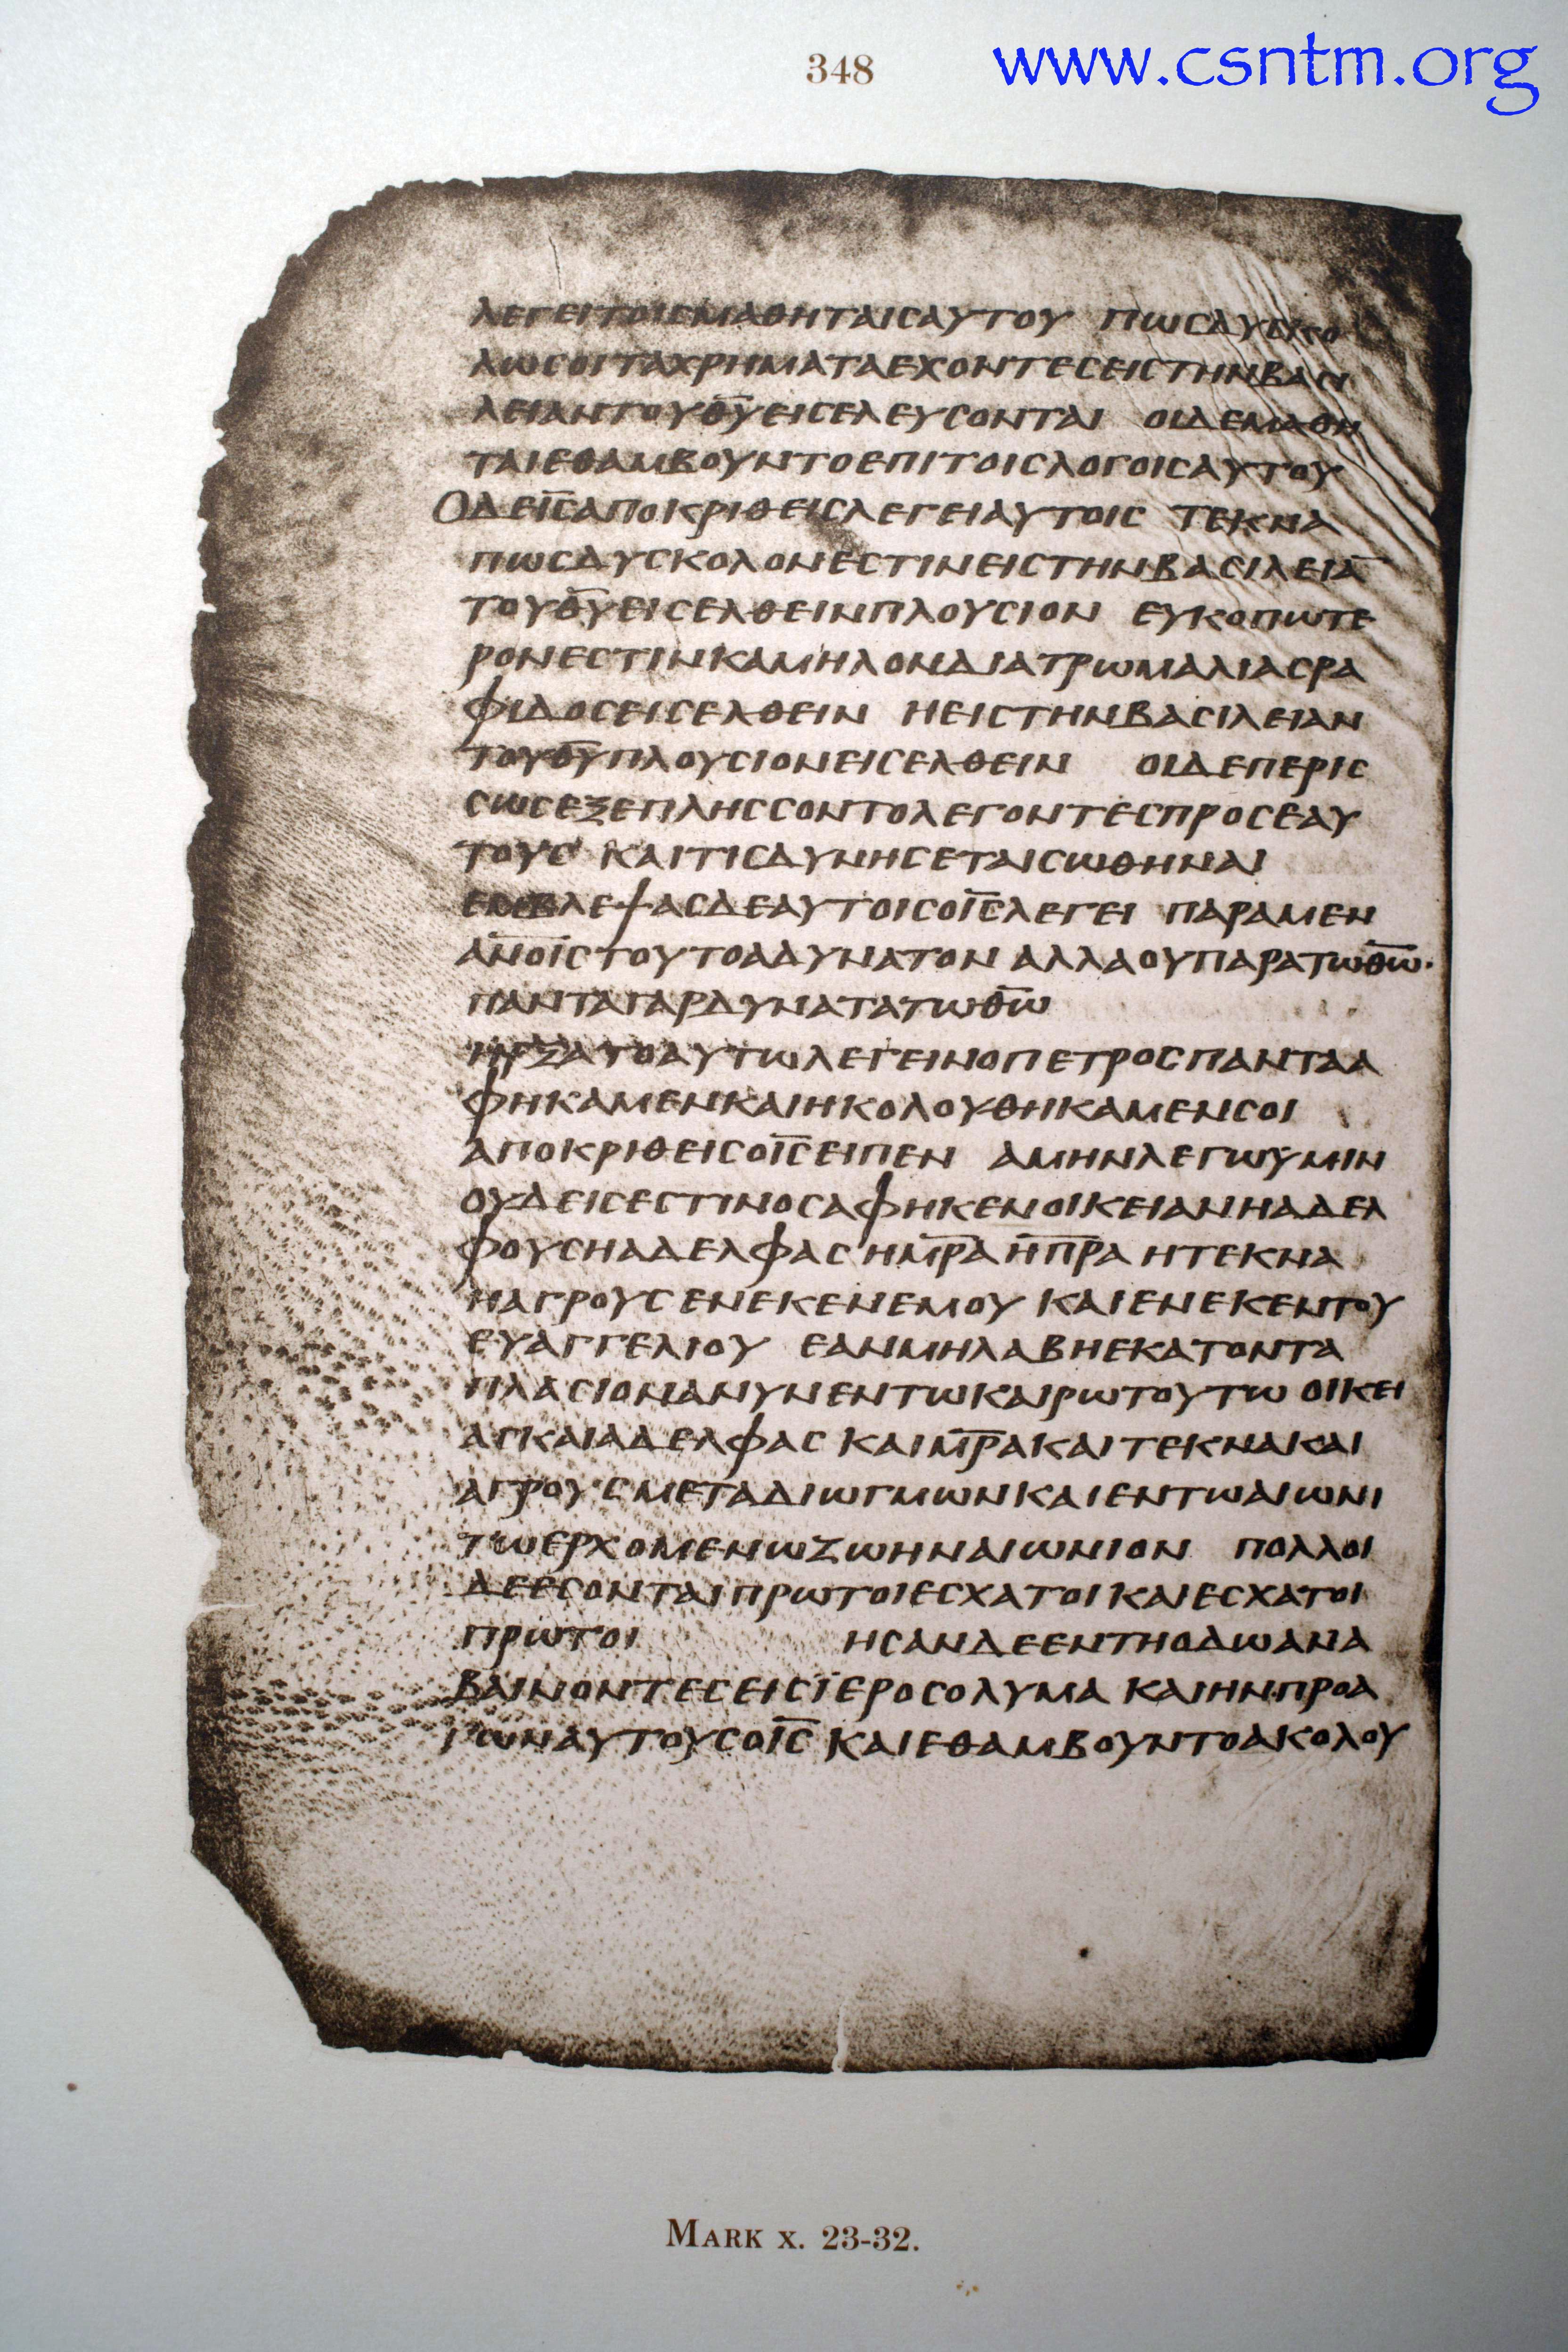 348
www.csntm.org
ΛΕΓΕΙΤΟΙCΜΑΘΗΤΑΙCΑΥΤΟΥ ΠωCΔΥCΚΟ
ΛωCΟΙΤΑΧΡΗΜΑΤΑΕΧΟΝΤΕCΕΙCΤΗΝΒΑCΙ
ΛΕΙΑΝΤΟΥΘ̅Υ̅ΕΙCΕΛΕΥCΟΝΤΑΙ ΟΙΔΕΜΑΘΗ
ΤΑΙΕΘΑΜΒΟΥΝΤΟΕΠΙΤΟΙCΛΟΓΟΙCΑΥΤΟΥ
ΟΔΕΙ̅C̅ΑΠΟΚΡΙΘΕΙCΛΕΓΕΙΑΥΤΟΙC ΤΕΚΝΑ
ΠωCΔΥCΚΟΛΟΝΕCΤΙΝΕΙCΤΗΝΒΑCΙΛΕΙΑ̅
ΤΟΥΘ̅Υ̅ΕΙCΕΛΘΕΙΝΠΛΟΥCΙΟΝ ΕΥΚΟΠωΤΕ
ΡΟΝΕCΤΙΝΚΑΜΗΛΟΝΔΙΑΤΡωΜΑΛΙΑCΡΑ
ΦΙΔΟCΕΙCΕΛΘΕΙΝ ΗΕΙCΤΗΝΒΑCΙΛΕΙΑΝ
ΤΟΥΘ̅Υ̅ΠΛΟΥCΙΟΝΕΙCΕΛΘΕΙΝ ΟΙΔΕΠΕΡΙC
CωCΕΞΕΠΛΗCCΟΝΤΟΛΕΓΟΝΤΕCΠΡΟCΕΑΥ
ΤΟΥC ΚΑΙΤΙCΔΥΝΗCΕΤΑΙCωΘΗΝΑΙ
ΕΜΒΛΕΨΑCΔΕΑΥΤΟΙCΟΙ̅C̅ΛΕΓΕΙ ΠΑΡΑΜΕΝ
Α̅Ν̅Ο̅Ι̅C̅ΤΟΥΤΟΑΔΥΝΑΤΟΝ ΑΛΛΑΟΥΠΑΡΑΤωΘ̅ω̅·
ΠΑΝΤΑΓΑΡΔΥΝΑΤΑΤωΘ̅ω̅
ΗΡΞΑΤΟΑΥΤωΛΕΓΕΙΝΟΠΕΤΡΟCΠΑΝΤΑΑ
ΦΗΚΑΜΕΝΚΑΙΗΚΟΛΟΥΘΗΚΑΜΕΝCΟΙ
ΑΠΟΚΡΙΘΕΙCΟΙ̅C̅ΕΙΠΕΝ ΑΜΗΝΛΕΓωΥΜΙΝ
ΟΥΔΕΙCΕCΤΙΝΟCΑΦΗΚΕΝΟΙΚΕΙΑΝΗΑΔΕΛ
ΦΟΥCΗΑΔΕΛΦΑC ΗΜ̅Ρ̅Α̅ ΗΠ̅Ρ̅Α̅ ΗΤΕΚΝΑ
ΗΑΓΡΟΥC ΕΝΕΚΕΝΕΜΟΥ ΚΑΙΕΝΕΚΕΝΤΟΥ
ΕΥΑΓΓΕΛΙΟΥ ΕΑΝΜΗΛΑΒΗΕΚΑΤΟΝΤΑ
ΠΛΑCΙΟΝΑΝΥΝΕΝΤωΚΑΙΡωΤΟΥΤω ΟΙΚΕΙ
ΑCΚΑΙΑΔΕΛΦΑC ΚΑΙΜ̅Ρ̅Α̅ΚΑΙΤΕΚΝΑΚΑΙ
ΑΓΡΟΥCΜΕΤΑΔΙωΓΜωΝΚΑΙΕΝΤωΑΙωΝΙ
ΤωΕΡΧΟΜΕΝωΖωΗΝΑΙωΝΙΟΝ ΠΟΛΛΟΙ
ΔΕΕCΟΝΤΑΙΠΡωΤΟΙΕCΧΑΤΟΙΚΑΙΕCΧΑΤΟΙ
ΠΡωΤΟΙ ΗCΑΝΔΕΕΝΤΗΟΔωΑΝΑ
ΒΑΙΝΟΝΤΕCΕΙCΪΕΡΟCΟΛΥΜΑ ΚΑΙΗΝΠΡΟΑ
ΓωΝΑΥΤΟΥCΟΙ̅C̅ ΚΑΙΕΘΑΜΒΟΥΝΤΟΑΚΟΛΟΥ
MARK X. 23-32.